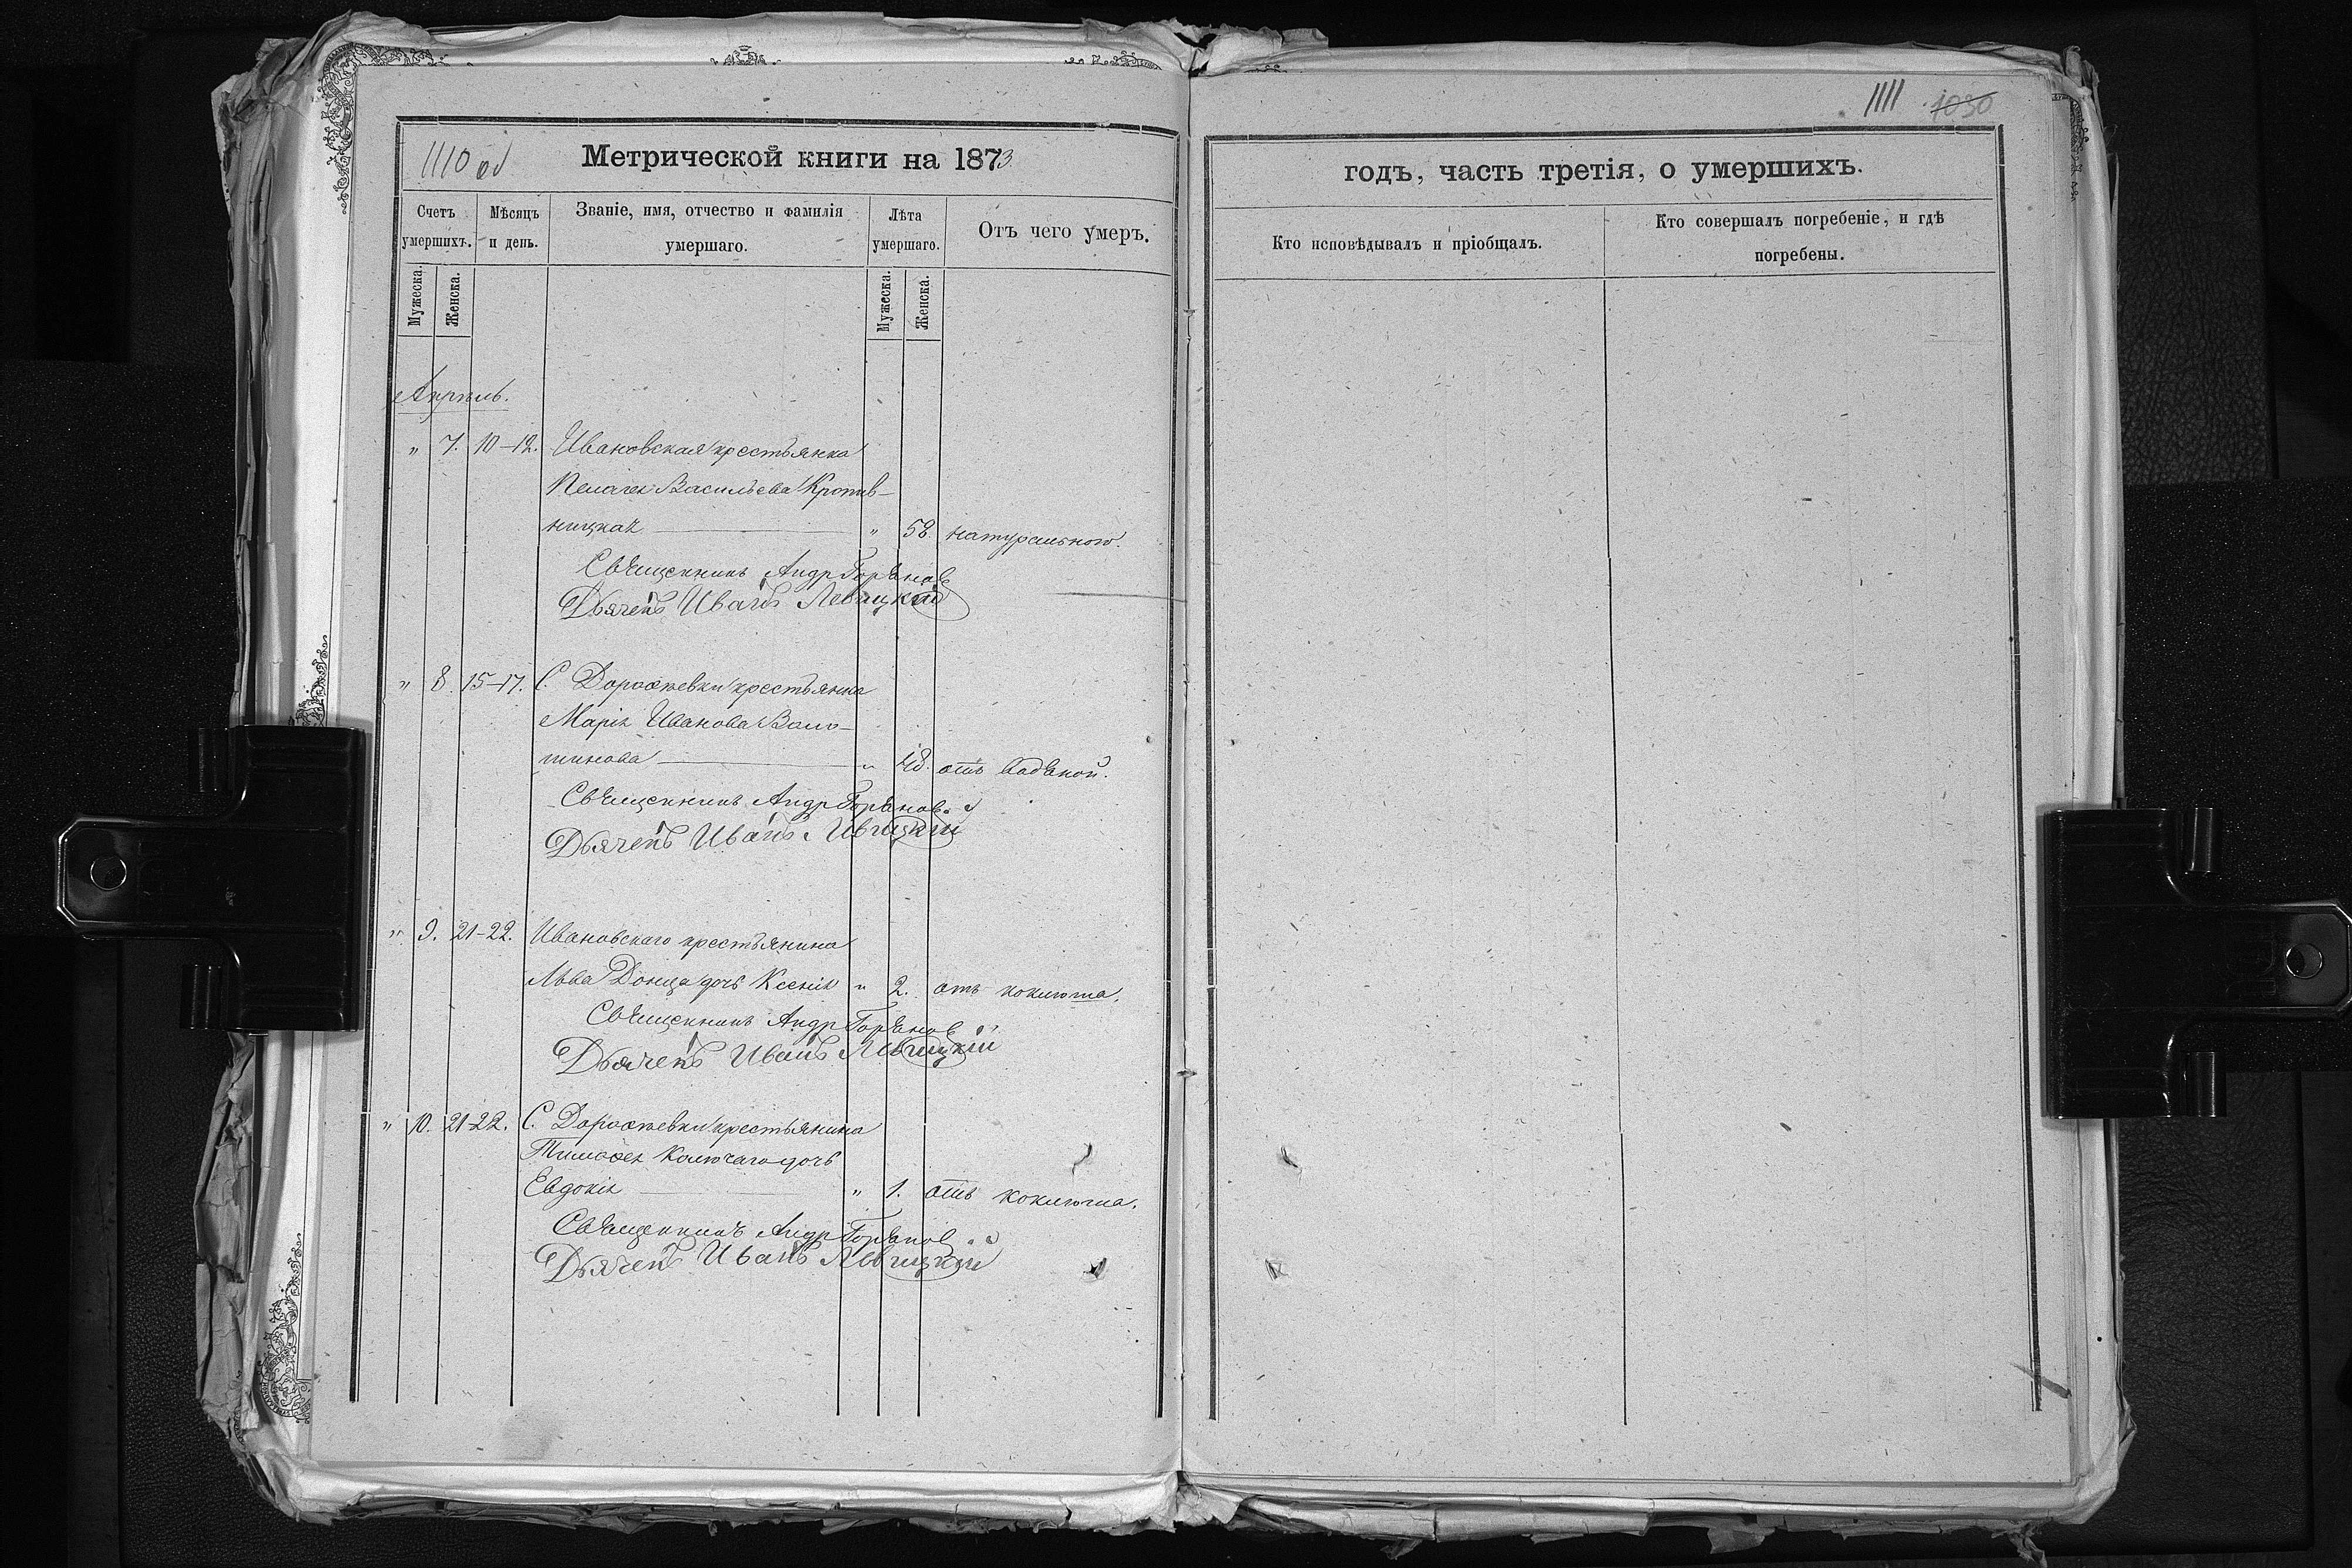 1110 об
Метрической книги на 1873
Счетъ умершихъ.
Мѣсяцъ и день.
Званіе, имя, отчество и фамилія умершаго.
Лѣта умершаго.
Отъ чего умеръ.
Мужеска.
Женска.
Мужеска.
Женска.
Апрѣль.
" 7. 10-12. Ивановская крестьянка
Пелагея Васильева Кропив-
ницкая " 58. натурального.
Священникъ Андр Горянов
Дьячекъ Иванъ Левицкій
" 8. 15-17. С. Дорофѣевки крестьянка
Марія Иванова Воло-
шинова " 48. отъ водяной.
Священникъ Андр Горянов
Дьячекъ Иванъ Левицкій
" 9. 21-22. Ивановскаго крестьянина
Льва Донца дочь Ксенія " 2. отъ коклюша.
Священникъ Андр Горянов
Дьячекъ Иванъ Левицкій
" 10. 21-22. С. Дорофѣевки крестьянина
Тимофея Колючаго дочь
Евдокія " 1. отъ коклюша.
Священникъ Андр Горянов
Дьячекъ Иванъ Левицкій
1111 1030
годъ, часть третія, о умершихъ.
Кто исповѣдывалъ и пріобщалъ.
Кто совершалъ погребеніе, и гдѣ
погребены.